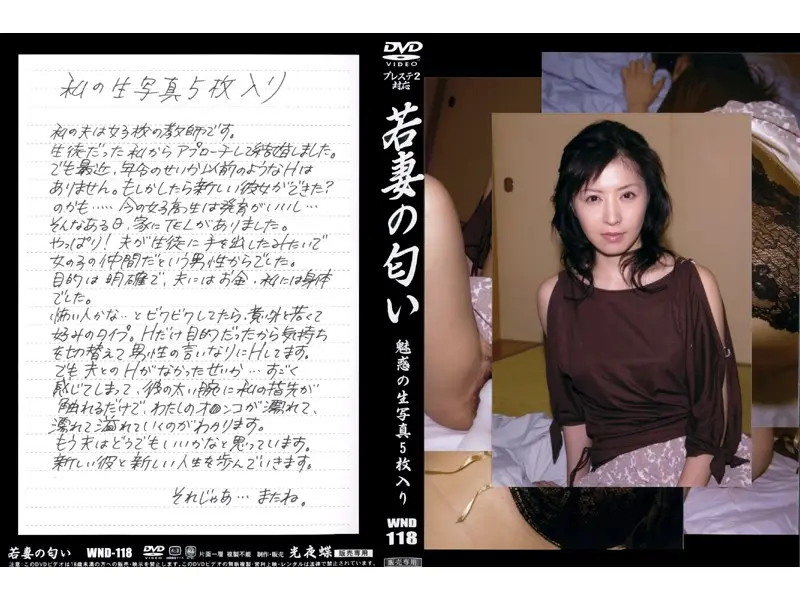 私の生写真5枚入り
私の夫は女子校の教師です。
生徒だった私からアプローチして結婚しました。
でも最近、年令のせいか以前のようなHは
ありません。もしかしたら新しい彼女ができた?
のかも…… 今の女子高生は発育がいいし…
そんなある日、家にTELがありました。
やっぱり!夫が生徒に手を出したみたいで
女の子の仲間だという男性からでした。
目的は明確で、夫にはお金、私には身体
でした。
怖い人かな…とビクビクしてたら、意外と若くて
好みのタイプ。Hだけ目的だったから気持ち
を切替えて男性の言いなりにHしてます。
でも夫とのHがなかったせいか…すごく
感じてしまって、彼の太い腕に私の指先が
触れるだけで、わたしのオ○ンコが濡れて、
濡れて溢れていくのがわかります。
もう夫はどうでもいいかなと思っています。
新しい彼と新しい人生を歩んでいきます。
それじゃあ… またね。
若妻の匂い WND-118 DVD VIDEO 片面一層 複製不能 制作・販売 光夜蝶 販売専用
注意:このDVDビデオは18歳未満の方への販売・映示を禁止します。このDVDビデオの無断複製・営利上映・レンタルは法律で禁止されています。
DVD
VIDEO
プレステ2
対応
若妻の匂い
魅惑の生写真5枚入り
WND
118
販売専用